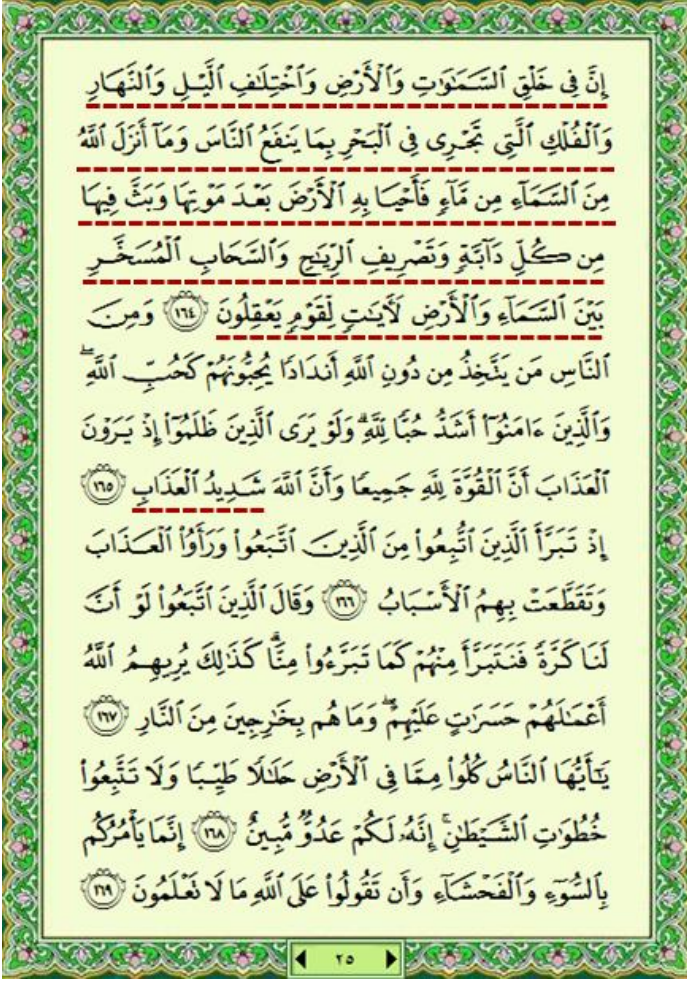 إِنَّ فِى خَلْقِ ٱلسَّمَٰوَٰتِ وَٱلْأَرْضِ وَٱخْتِلَٰفِ ٱلَّيْلِ وَٱلنَّهَارِ
وَٱلْفُلْكِ ٱلَّتِى تَجْرِى فِى ٱلْبَحْرِ بِمَا يَنفَعُ ٱلنَّاسَ وَمَآ أَنزَلَ ٱللَّهُ
مِنَ ٱلسَّمَآءِ مِن مَّآءٍ فَأَحْيَا بِهِ ٱلْأَرْضَ بَعْدَ مَوْتِهَا وَبَثَّ فِيهَا
مِن كُلِّ دَآبَّةٍ وَتَصْرِيفِ ٱلرِّيَٰحِ وَٱلسَّحَابِ ٱلْمُسَخَّرِ
بَيْنَ ٱلسَّمَآءِ وَٱلْأَرْضِ لَءَايَٰتٍ لِّقَوْمٍ يَعْقِلُونَ ١٦٤ وَمِنَ
ٱلنَّاسِ مَن يَتَّخِذُ مِن دُونِ ٱللَّهِ أَندَادًا يُحِبُّونَهُمْ كَحُبِّ ٱللَّهِ ۖ
وَٱلَّذِينَ ءَامَنُوٓا۟ أَشَدُّ حُبًّا لِّلَّهِ ۗ وَلَوْ يَرَى ٱلَّذِينَ ظَلَمُوٓا۟ إِذْ يَرَوْنَ
ٱلْعَذَابَ أَنَّ ٱلْقُوَّةَ لِلَّهِ جَمِيعًا وَأَنَّ ٱللَّهَ شَدِيدُ ٱلْعَذَابِ ١٦٥
إِذْ تَبَرَّأَ ٱلَّذِينَ ٱتُّبِعُوا۟ مِنَ ٱلَّذِينَ ٱتَّبَعُوا۟ وَرَأَوُا۟ ٱلْعَذَابَ
وَتَقَطَّعَتْ بِهِمُ ٱلْأَسْبَابُ ١٦٦ وَقَالَ ٱلَّذِينَ ٱتَّبَعُوا۟ لَوْ أَنَّ
لَنَا كَرَّةً فَنَتَبَرَّأَ مِنْهُمْ كَمَا تَبَرَّءُوا۟ مِنَّا ۗ كَذَٰلِكَ يُرِيهِمُ ٱللَّهُ
أَعْمَٰلَهُمْ حَسَرَٰتٍ عَلَيْهِمْ ۖ وَمَا هُم بِخَٰرِجِينَ مِنَ ٱلنَّارِ ١٦٧
يَٰٓأَيُّهَا ٱلنَّاسُ كُلُوا۟ مِمَّا فِى ٱلْأَرْضِ حَلَٰلًا طَيِّبًا وَلَا تَتَّبِعُوا۟
خُطُوَٰتِ ٱلشَّيْطَٰنِ ۚ إِنَّهُۥ لَكُمْ عَدُوٌّ مُّبِينٌ ١٦٨ إِنَّمَا يَأْمُرُكُم
بِٱلسُّوٓءِ وَٱلْفَحْشَآءِ وَأَن تَقُولُوا۟ عَلَى ٱللَّهِ مَا لَا تَعْلَمُونَ ١٦٩
٢٥